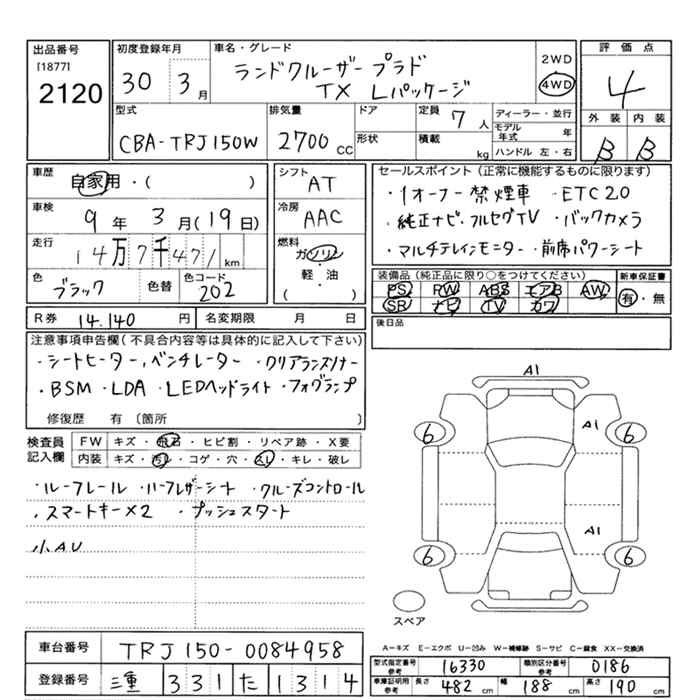 出品番号
[1877]
2120
初度登録年月
30 3月
車名・グレード
ランドクルーザー プラド
TX Lパッケージ
2WD
4WD
評価点
4
外装 内装
B B
型式
CBA-TRJ150W
排気量
2700 CC
ドア
形状
定員 7 人
積載 kg
ディーラー・並行
モデル年式 年
ハンドル 左・右
車歴
自家用・( )
車検
9年 3月(19日)
走行
14万7千471 km
色
ブラック
色替
色コード
202
シフト
AT
冷房
AAC
燃料
ガソリン
・軽・油
( )
セールスポイント(正常に機能するものに限ります)
・1オーナー・禁煙車・ETC2.0
・純正ナビ・フルセグTV・バックカメラ
・マルチテレインモニター・前席パワーシート
装備品(純正品に限り○をつけてください)
PS PW ABS エアB AW
SR ナビ TV カワ
新車保証書
有・無
後日品
R券 14.140 円
名変期限 月 日
注意事項申告欄(不具合内容等は具体的に記入して下さい)
・シートヒーター,ベンチレーター・クリアランスソナー
・BSM・LDA・LEDヘッドライト・フォグランプ
修復歴 有〔箇所 〕
検査員記入欄
FW キズ・飛石・ヒビ割・リペア跡・X要
内装 キズ・汚レ・コゲ・穴・スレ・キレ・破レ
・ルーフレール・ハーフレザーシート・クルーズコントロール
・スマートキー×2・プッシュスタート
小AU
A1
6 A1 6
A1
6 6
スペア
A=キズ E=エクボ U=凹み W=補修跡 S=サビ C=腐食 XX=交換済
車台番号 TRJ150-0084958
登録番号 三重 331 た 1314
型式指定番号 参考 16330
類別区分番号 参考 0186
車庫証明用 参考 長さ 482 cm 幅 188 cm 高さ 190 cm